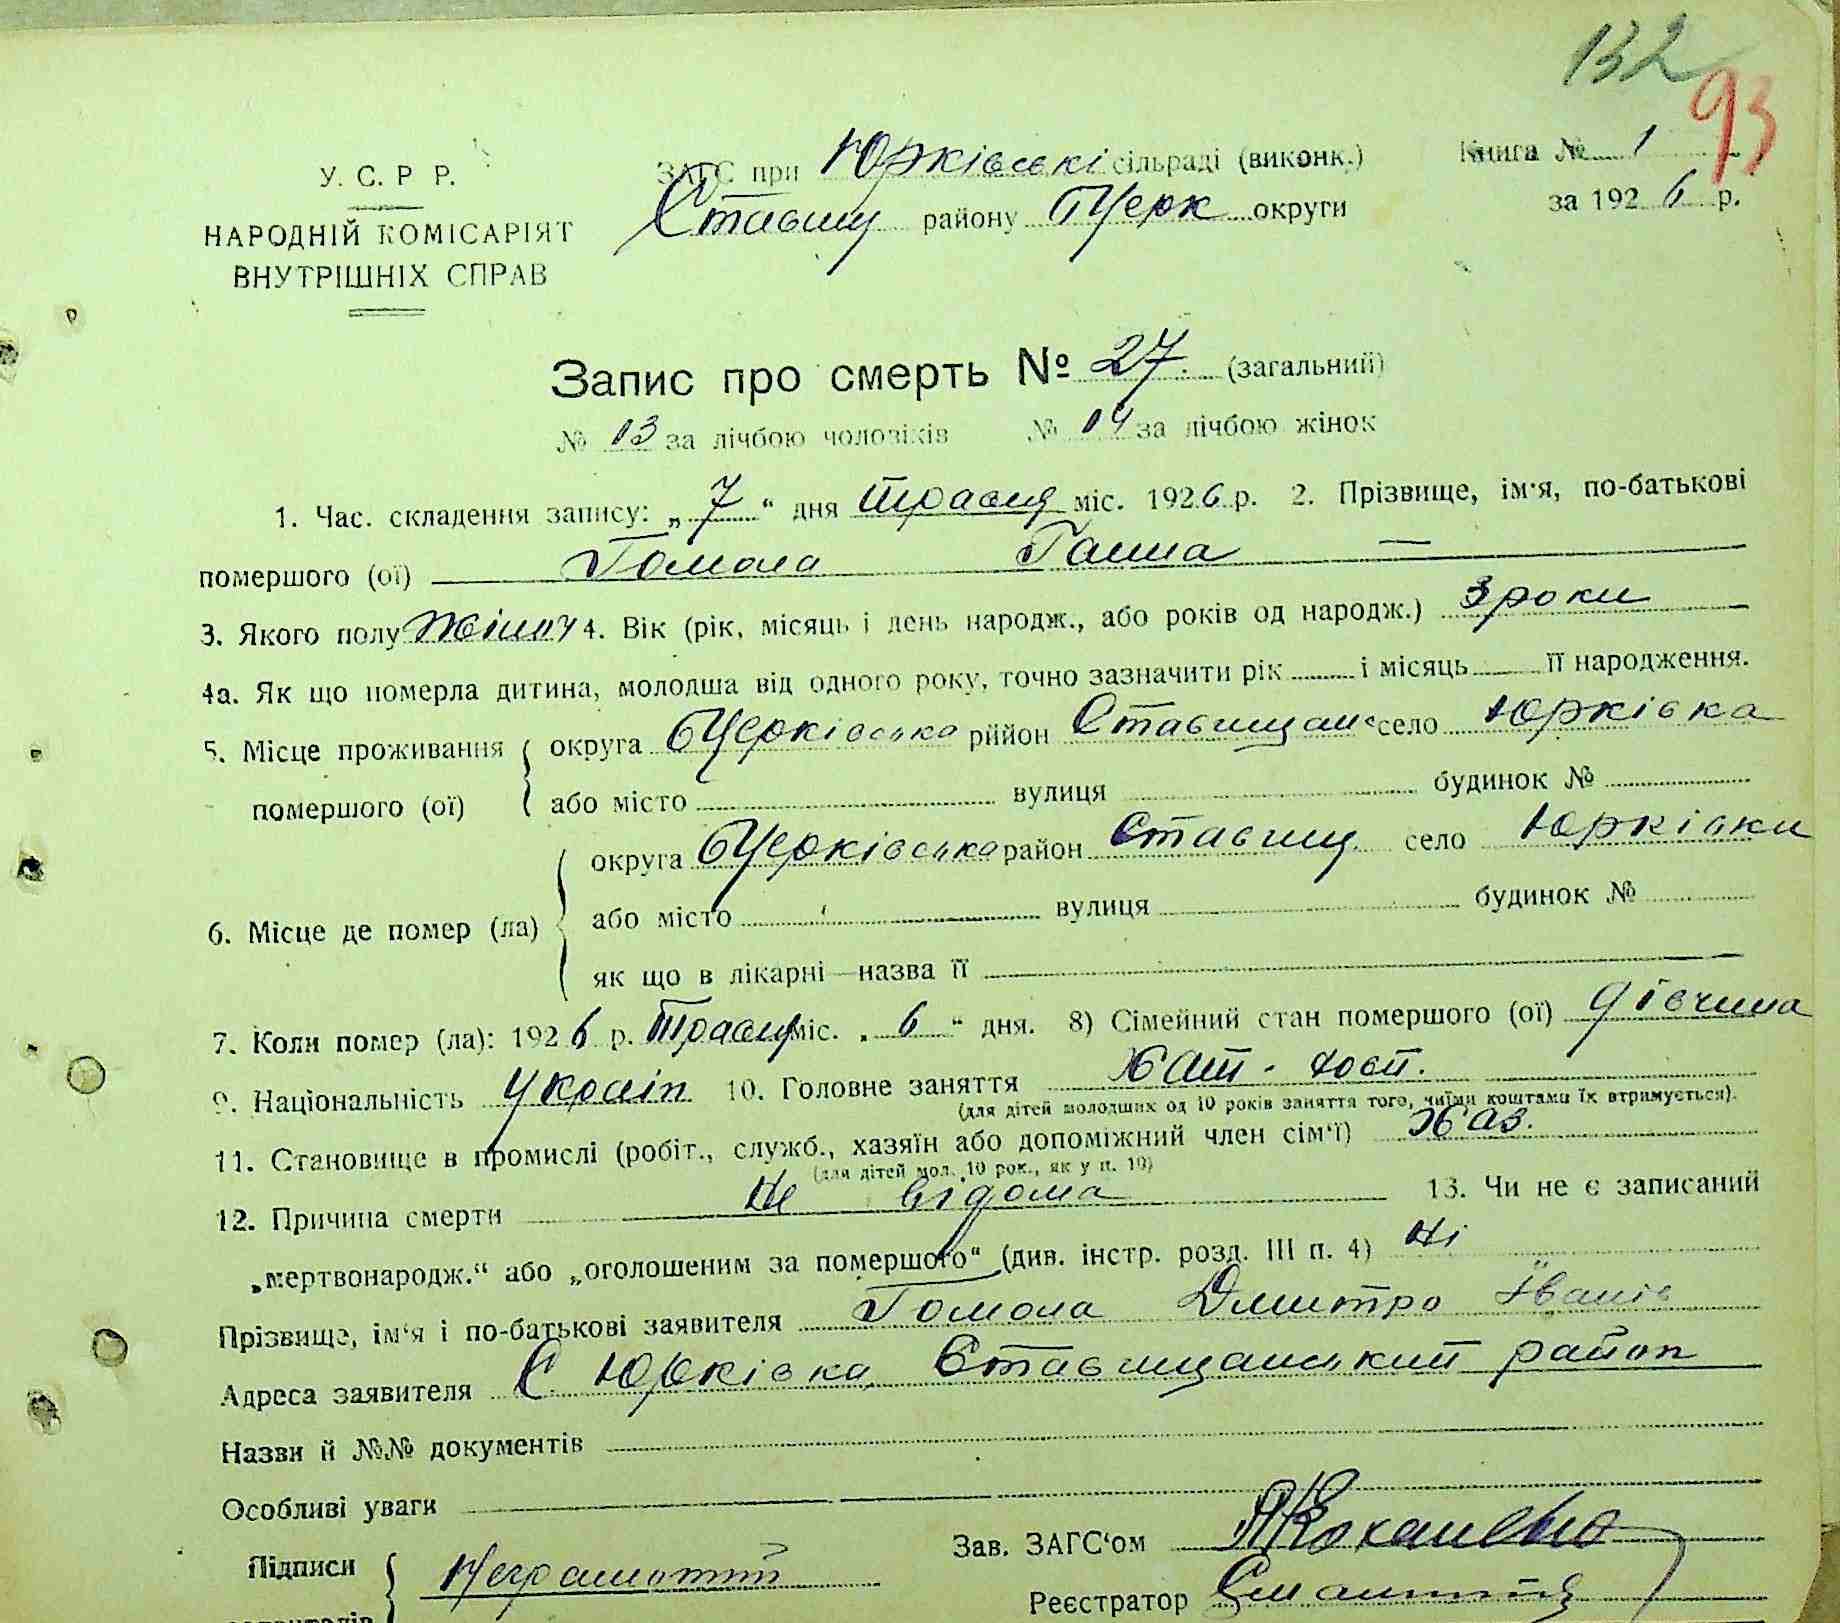 132
93
У. С. Р Р.
НАРОДНІЙ КОМІСАРІЯТ
ВНУТРІШНІХ СПРАВ
ЗАГС при Юрківські сільраді (виконк.)
Ставищ району БЦерк округи
Книга № 1
за 1926 р.
Запис про смерть № 27. (загальний)
№ 13 за лічбою чоловіків № 14 за лічбою жінок
1. Час. складення запису: „7“ дня Травня міс. 1926 р. 2. Прізвище, ім'я, по-батькові
помершого (ої) Гомола Ганна —
3. Якого полу Жіноч 4. Вік (рік, місяць і день народж., або років од народж.) 3 роки
4а. Як що померла дитина, молодша від одного року, точно зазначити рік і місяць її народження.
5. Місце проживання округа БЦерківська рийон Ставищанс село Юрківка
помершого (ої) або місто вулиця будинок №
округа БЦерківська район Ставищ село Юрківки
6. Місце де помер (ла) або місто вулиця будинок №
як що в лікарні—назва її
7. Коли помер (ла): 1926 р. Травня міс. „6“ дня. 8) Сімейний стан помершого (ої) дівчина
9. Національність Україн 10. Головне заняття Хат. госп.
(для дітей молодших од 10 років заняття того, чиїми коштами їх втримується).
11. Становище в промислі (робіт., служб., хазяїн або допоміжний член сім'ї) Хаз.
(для дітей мол. 10 рок., як у п. 10)
12. Причина смерти Не відома 13. Чи не є записаний
„мертвонародж.“ або „оголошеним за помершого“ (див. інстр. розд. III п. 4) Ні
Прізвище, ім'я і по-батькові заявителя Гомола Дмитро Іванів
Адреса заявителя С. Юрківка, Ставищанський район
Назви й №№ документів
Особливі уваги
Зав. ЗАГС'ом
Підписи Неграмотний
Реєстратор